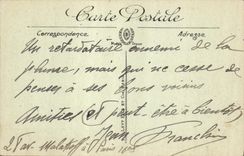 Carte Postale
Correspondance
Adresse
Un retardataire ennemi de la
plume, mais qui ne cesse de
penser à ses bons amis
Amitiés et peut-être à bientôt
Franchin
2 Rue Malakoff à Paris 16e